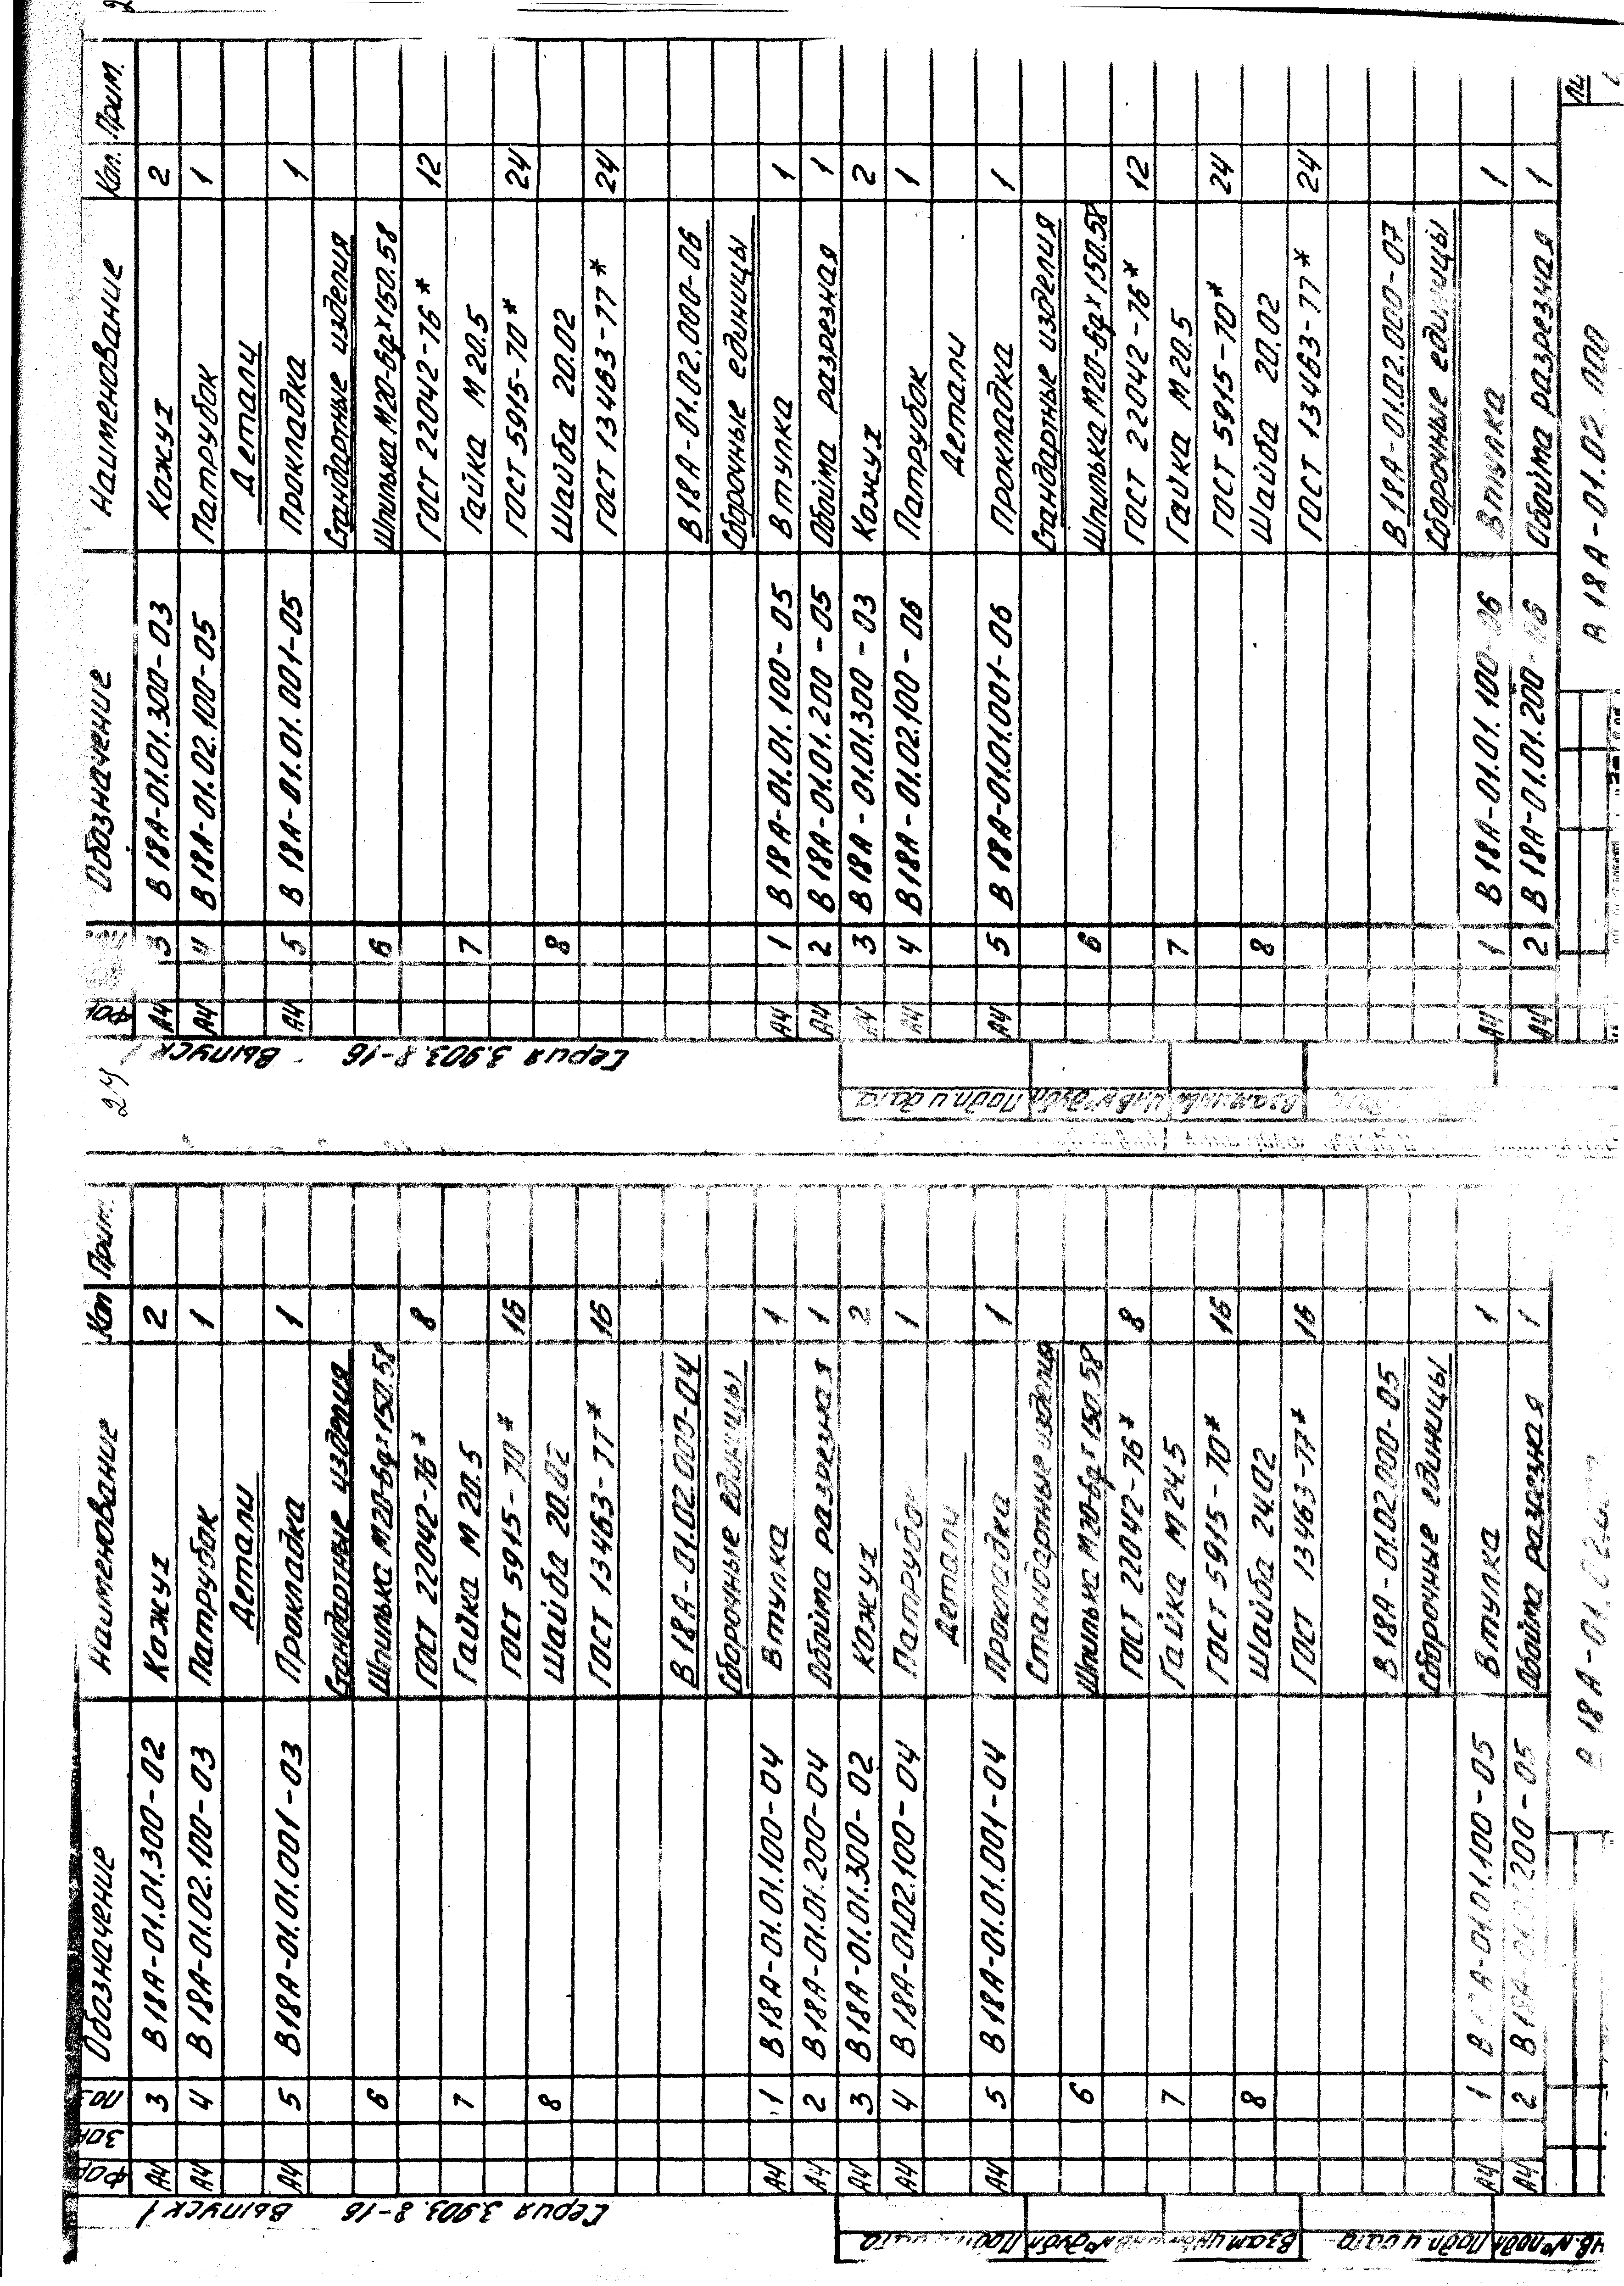 Серия 3.903.8-16 Выпуск 1
Обозначение Наименование Кол Прим.
А4 3 В18А-01.01.300-02 Кожух 2
А4 4 В18А-01.02.100-03 Патрубок 1
Детали
А4 5 В18А-01.01.001-03 Прокладка 1
Стандартные изделия
6 Шпилька М20-6gх150.58
ГОСТ 22042-76* 8
7 Гайка М20.5
ГОСТ 5915-70* 16
8 Шайба 20.02
ГОСТ 13463-77* 16
В18А-01.02.000-04
Сборочные единицы
А4 1 В18А-01.01.100-04 Втулка 1
А4 2 В18А-01.01.200-04 Обойма разрезная 1
А4 3 В18А-01.01.300-02 Кожух 2
А4 4 В18А-01.02.100-04 Патрубок 1
Детали
А4 5 В18А-01.01.001-04 Прокладка 1
Стандартные изделия
6 Шпилька М20-6gх150.58
ГОСТ 22042-76* 8
7 Гайка М24.5
ГОСТ 5915-70* 16
8 Шайба 24.02
ГОСТ 13463-77* 16
В18А-01.02.000-05
Сборочные единицы
А4 1 В18А-01.01.100-05 Втулка 1
А4 2 В18А-01.01.200-05 Обойма разрезная 1
В18А-01.02
Подп и дата
Взам инв №
Инв № дубл
Подп и дата
24
Серия 3.903.8-16 Выпуск 1
Обозначение Наименование Кол. Прим.
А4 3 В18А-01.01.300-03 Кожух 2
А4 4 В18А-01.02.100-05 Патрубок 1
Детали
А4 5 В18А-01.01.001-05 Прокладка 1
Стандартные изделия
6 Шпилька М20-6gх150.58
ГОСТ 22042-76* 12
7 Гайка М20.5
ГОСТ 5915-70* 24
8 Шайба 20.02
ГОСТ 13463-77* 24
В18А-01.02.000-06
Сборочные единицы
А4 1 В18А-01.01.100-05 Втулка 1
А4 2 В18А-01.01.200-05 Обойма разрезная 1
А4 3 В18А-01.01.300-03 Кожух 2
А4 4 В18А-01.02.100-06 Патрубок 1
Детали
А4 5 В18А-01.01.001-06 Прокладка 1
Стандартные изделия
6 Шпилька М20-6gх150.58
ГОСТ 22042-76* 12
7 Гайка М20.5
ГОСТ 5915-70* 24
8 Шайба 20.02
ГОСТ 13463-77* 24
В18А-01.02.000-07
Сборочные единицы
А4 1 В18А-01.01.100-06 Втулка 1
А4 2 В18А-01.01.200-06 Обойма разрезная 1
В18А-01.02.000
Взам инв №
Инв № дубл
Подп и дата